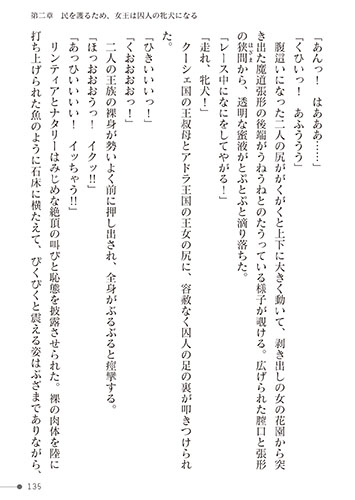 第二章　民を護るため、女王は囚人の牝犬になる
「あんっ！　はあああ……」
「くひいっ！　あふううう」
腹這いになった二人の尻ががくがくと上下に大きく動いて、剥き出しの女の花園から突
き出た魔道張形の後端がうねうねとのたうっている様子が覗ける。広げられた膣口と張形
の狭間から、透明な蜜液がとぷとぷと滴り落ちた。
「レース中になにをしてやがる！」
「走れ、牝犬！」
クーシェ国の王叔母とアドラ王国の王女の尻に、容赦なく囚人の足の裏が叩きつけられ
た。
「ひきいいいっ！」
「くおおおおっ！」
二人の王族の裸身が勢いよく前に押し出され、全身がぶるぶると痙攣する。
「ほっおおおうっ！　イクッ!!」
「あっひいいいい！　イッちゃう!!」
リンティアとナタリーはみじめな絶頂の叫びと恥態を披露させられた。裸の肉体を陸に
打ち上げられた魚のように石床に横たえて、ぴくぴくと震える姿はぶざまでありながら、
135